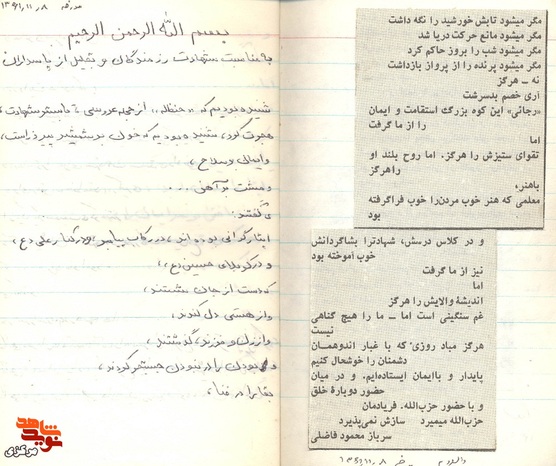 مورخه ۱۳۶۱/۱۱/۸
بسم الله الرحمن الرحیم
به مناسبت شهادت رزمندگان و تجلیل از پاسداران
شنیده بودیم که «حنظله» از حجله عروسی، تا بستر شهادت،
هجرت کرد، شنیده بودیم که خون بر شمشیر پیروز است،
و ایمان بر سلاح،
و مشت بر آهن ...
و گفتند:
ایثارگرانی بوده‌اند، در رکاب پیامبر، در کنار علی (ع)،
و در کربلای حسین (ع)،
که دست از جان شستند،
و از هستی دل کندند،
و از زن و فرزند، گذشتند،
و بودن را در نبودن جستجو کردند،
بقا را در فنا،
مگر میشود تابش خورشید را نگه داشت
مگر میشود مانع حرکت دریا شد
مگر میشود شب را بروز حاکم کرد
مگر میشود پرنده را از پرواز بازداشت
نه ــ هرگز
آری خصم بدسرشت
«رجائی» این کوه بزرگ استقامت و ایمان
را از ما گرفت
اما
تقوای ستیزش را هرگز. اما روح بلند او
را هرگز
باهنر،
معلمی که هنر خوب مردن را خوب فراگرفته
بود
و در کلاس درسش، شهادت را بشاگردانش
خوب آموخته بود
نیز از ما گرفت
اما
اندیشهٔ والایش را هرگز
غم سنگینی است اما ــ ما را هیچ گناهی
نیست
هرگز مباد روزی که با غبار اندوهمان
دشمنان را خوشحال کنیم
پایدار و باایمان ایستاده‌ایم. و در میان
حضور دوبارهٔ خلق
و با حضور حزب‌الله. فریادمان
حزب‌الله میمیرد سازش نمی‌پذیرد
سرباز محمود فاضلی
۱۳۶۱/۱۱/۸
نوید شاهد
مرکزی